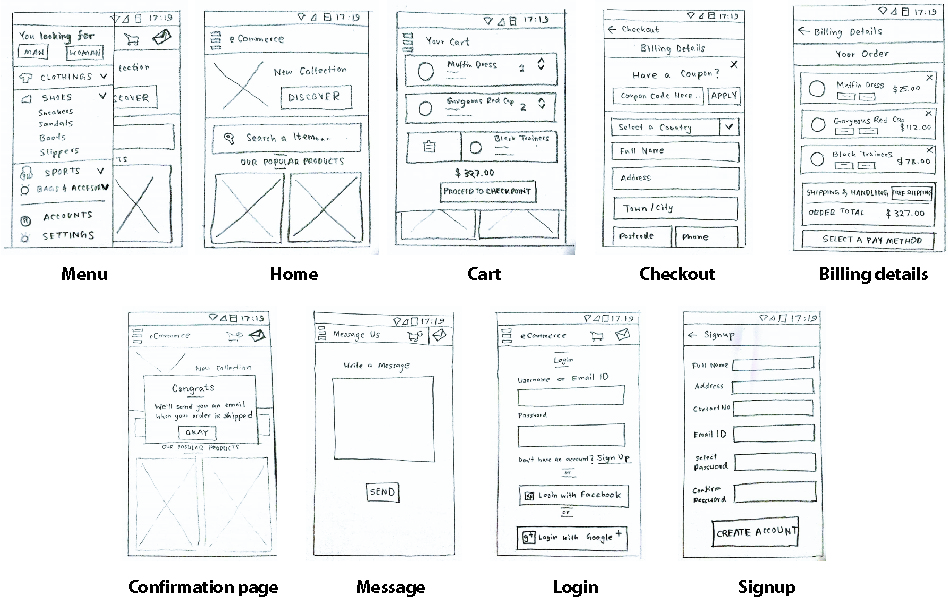 17:19
You looking for
MAN WOMAN
CLOTHINGS
SHOES
Sneakers
Sandals
Boots
Slippers
SPORTS
BAGS &
ACCOUNTS
SETTINGS
Menu
17:19
eCommerce
New Collection
DISCOVER
Search a item...
OUR POPULAR PRODUCTS
Home
17:19
Your Cart
Muffin Dress 2
Gorgeous Red Cap 2
Black Trainers
$327.00
PROCEED TO CHECKPOINT
Cart
17:19
Checkout
Billing Details
Have a Coupon?
Coupon Code Here.. APPLY
Select a Country
Full Name
Address
Town/City
Postcode Phone
Checkout
17:19
Billing Details
Your Order
Muffin Dress $75.00
Gorgeous Red Cap $112.00
Black Trainers $78.00
SHIPPING & HANDLING FREE SHIPPING
ORDER TOTAL $327.00
SELECT A PAY METHOD
Billing details
17:19
eCommerce
New Collection
Congrats
We'll send you an email
when your order is shipped
OKAY
OUR POPULAR PRODUCTS
Confirmation page
17:19
Message Us
Write a Message
SEND
Message
17:19
eCommerce
Login
Username or Email ID
Password
Don't have an account? Sign Up
or
Login with Facebook
or
g+ Login with Google+
Login
17:19
Signup
Full Name
Address
Contact No
Email ID
Select
Password
Confirm
Password
CREATE ACCOUNT
Signup